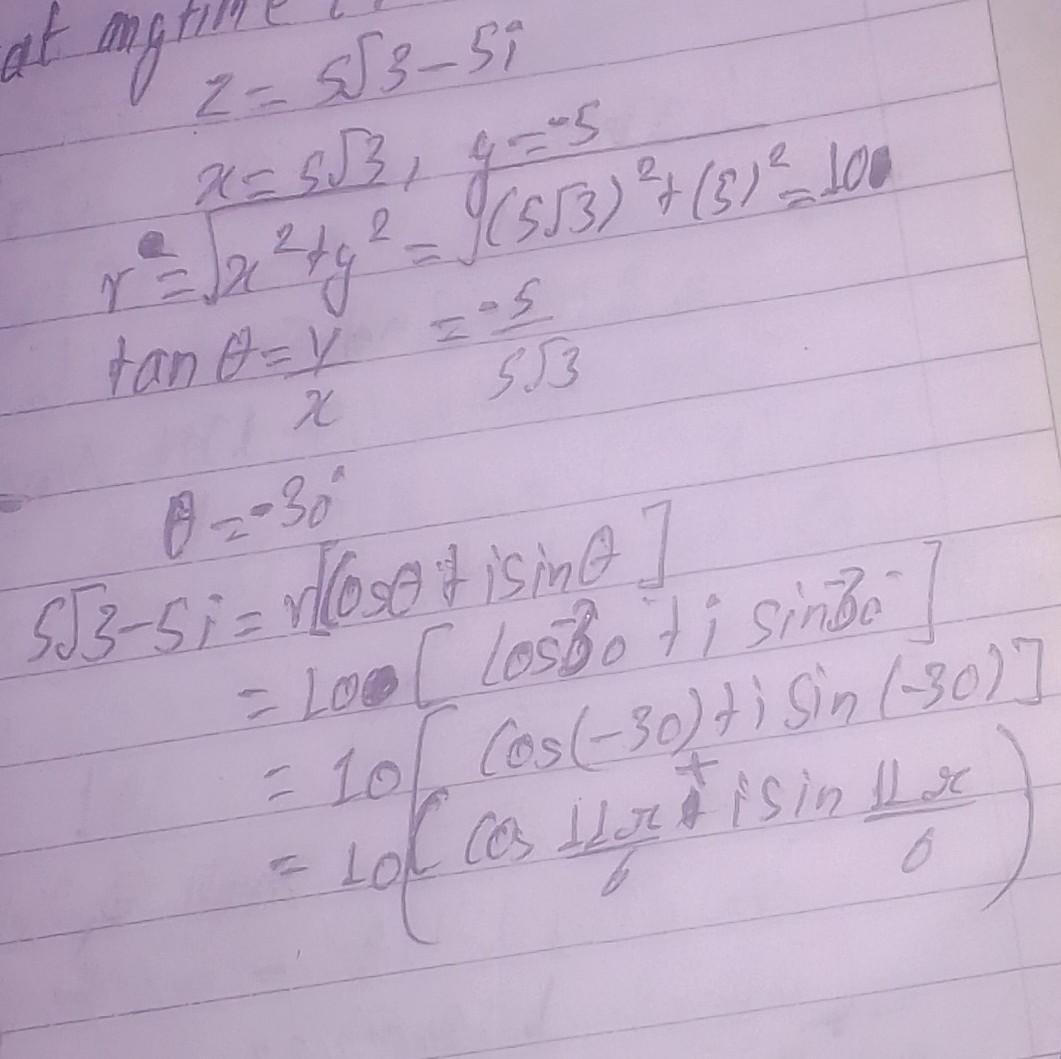 at anytime
z = 5√3 - 5i
x = 5√3, y = -5
r = √x² + y² = √(5√3)² + (5)² = 10
tan θ = y/x = -5/5√3
θ = -30°
5√3 - 5i = r[Cosθ + isinθ]
= 10[Cos-30 + i sin-30]
= 10[Cos(-30) + i Sin(-30)]
= 10(Cos 11π/6 + isin 11π/6)